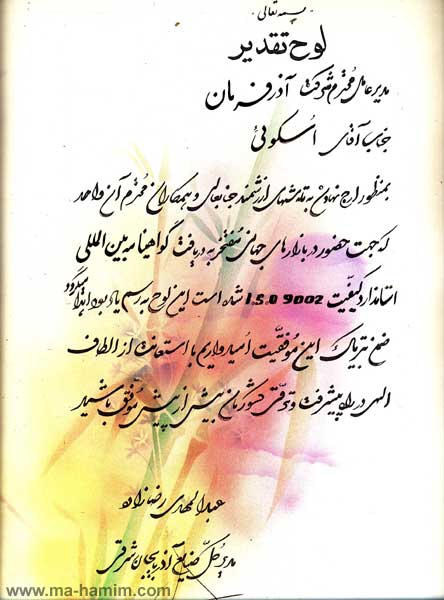 بسمه تعالی
لوح تقدیر
مدیر عامل محترم شرکت آذر فرمان
جناب آقای اسکوئی
بمنظور ارج نهادن به تلاشهای ارزشمند جنابعالی و همکاران محترم آن واحد
که جهت حضور در بازارهای جهانی مفتخر به دریافت گواهینامه بین المللی
استاندارد کیفیت I.S.O 9002 شده است این لوح به رسم یادبود اهدا میگردد
ضمن تبریک این موفقیت امیدواریم با استعانت از الطاف
الهی در راه پیشرفت و ترقی کشورمان بیش از پیش موفق باشید
عبدالمهدی رضازاده
مدیر کل صنایع آذربایجان شرقی
www.ma-hamim.com